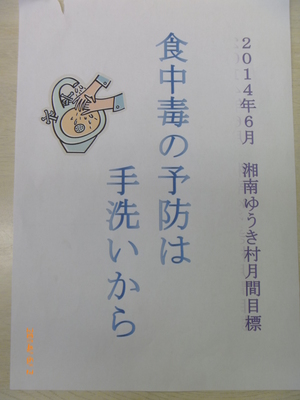 2014年6月　湘南ゆうき村月間目標
食中毒の予防は
手洗いから